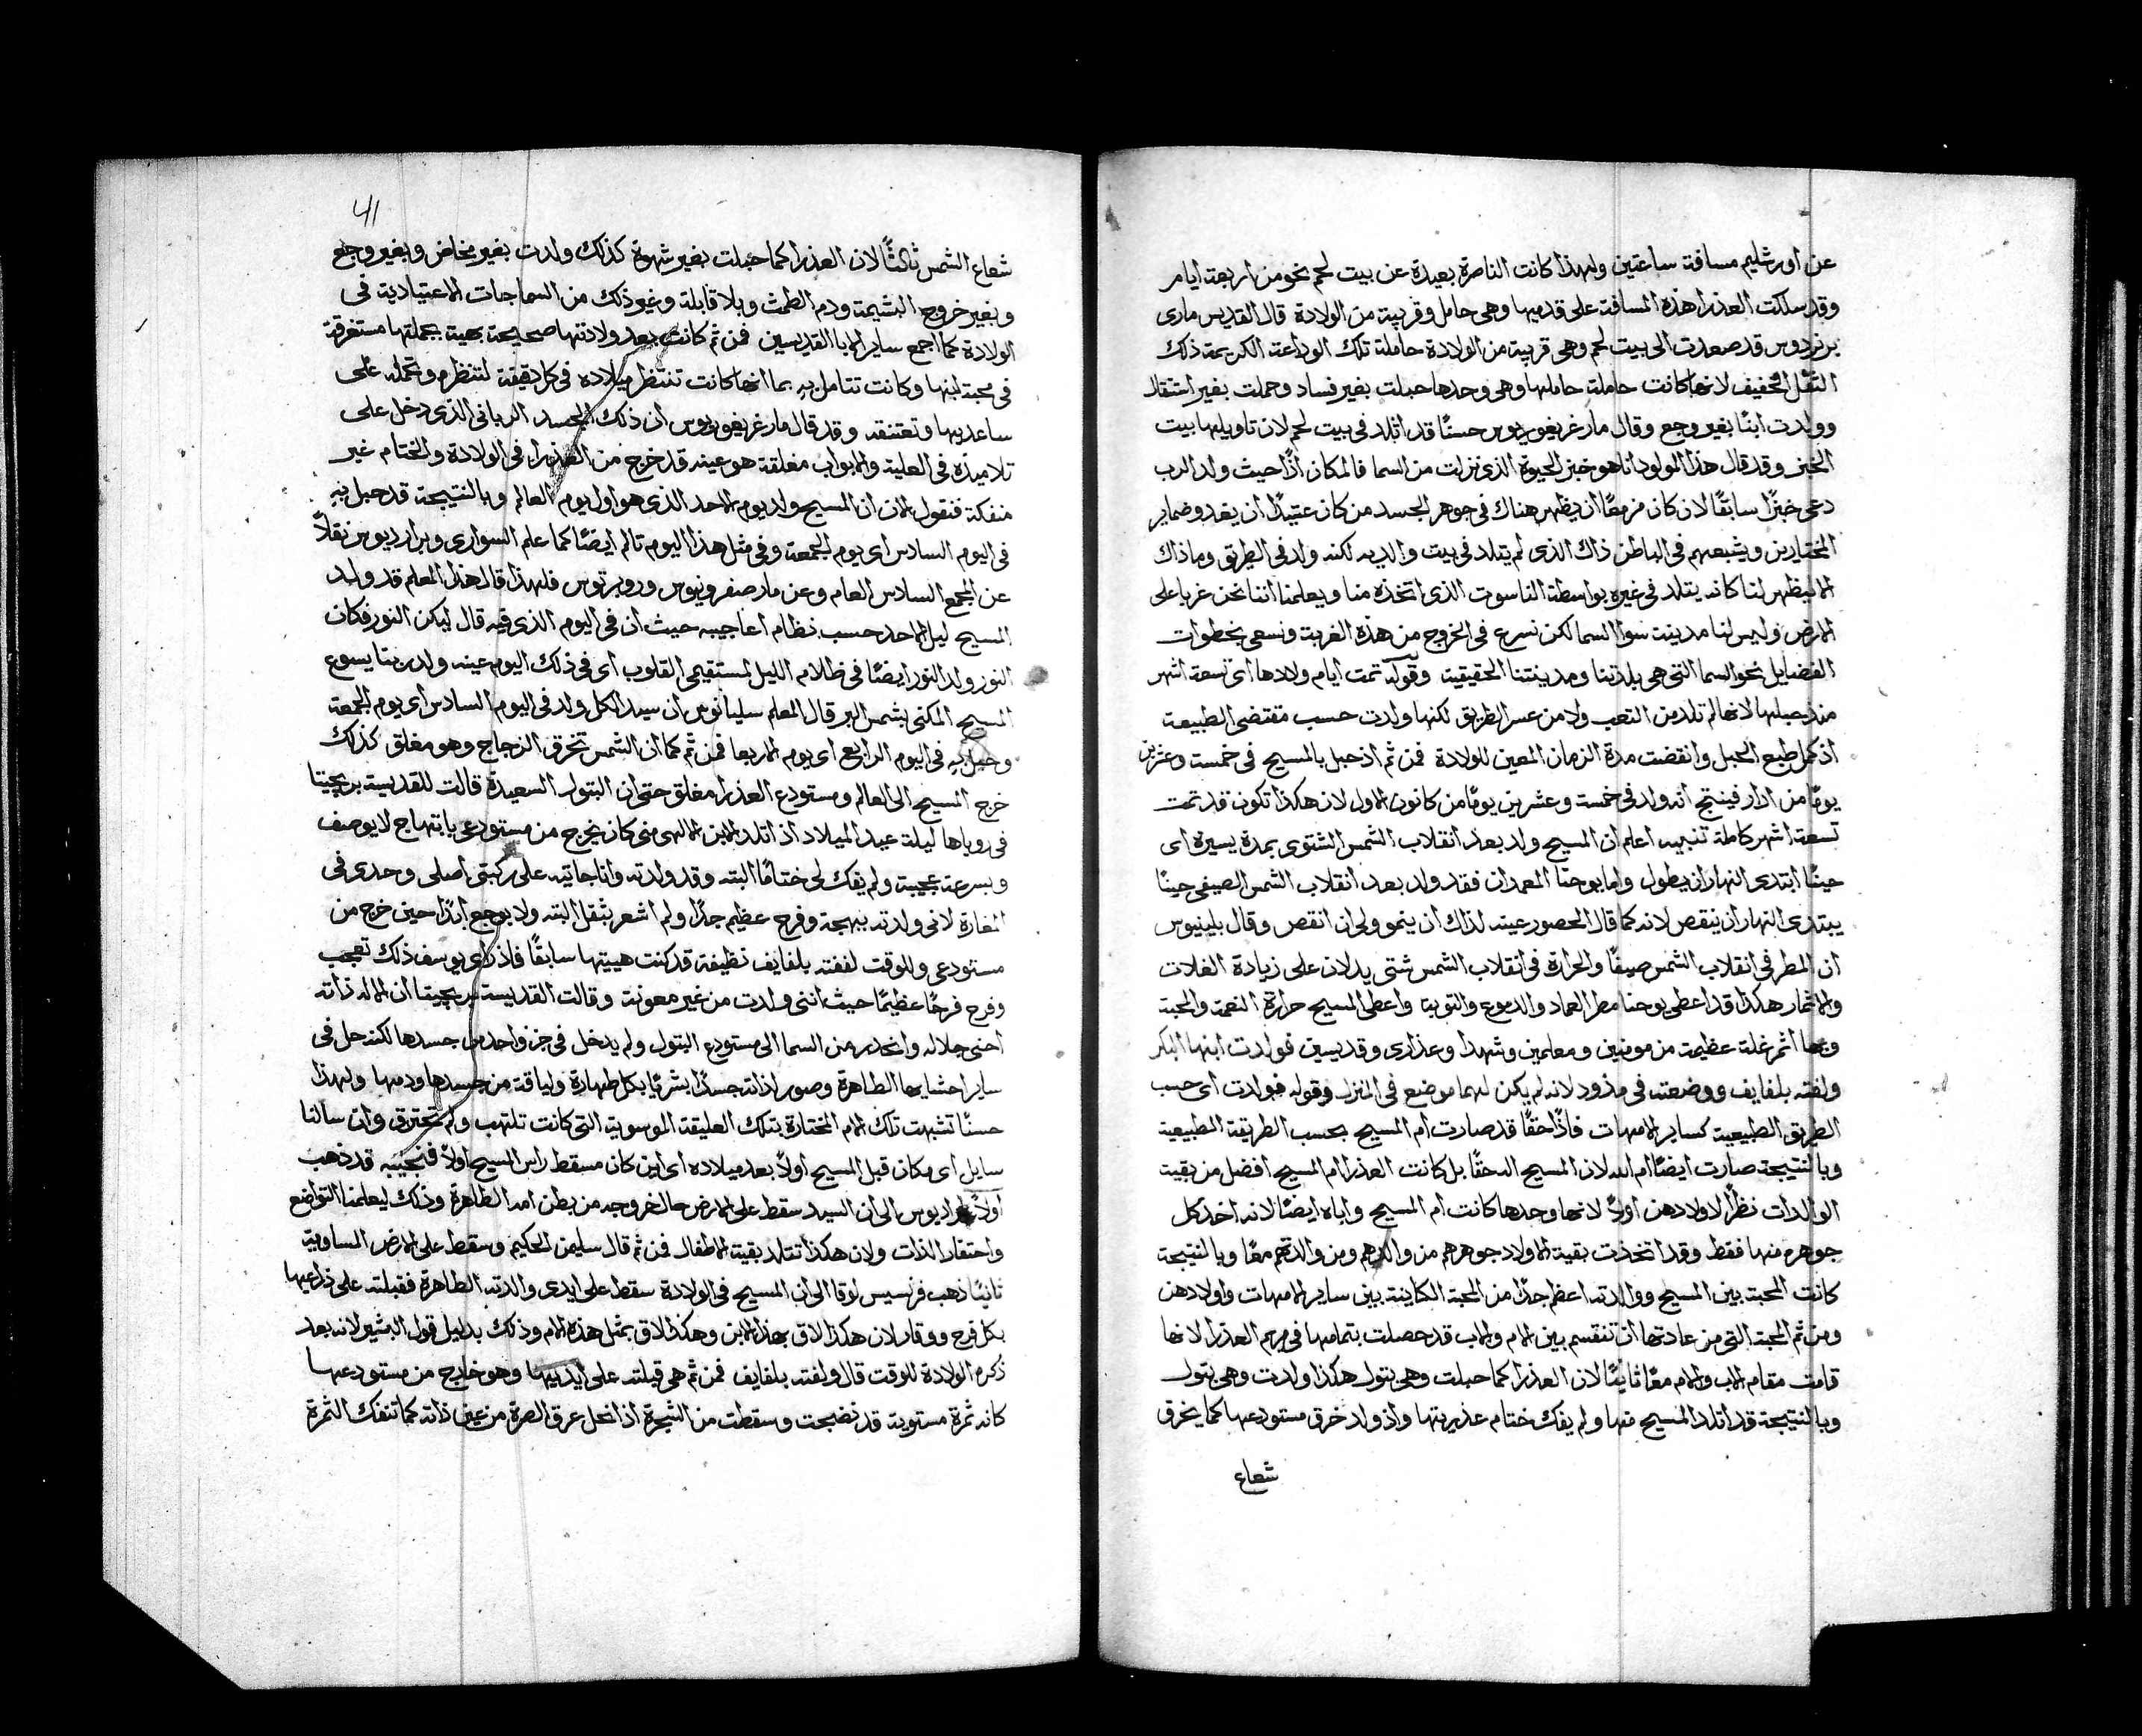 عن اورشليم مسافة ساعتين ولهذا كانت الناصرة بعيدة عن بيت لحم نحو من اربعة ايام
وقد سلكت العذرا هذه المسافة على قدميها وهي حامل وقريبة من الولادة قال القديس ماري
برنردوس قد صعدت الى بيت لحم وهي قريبة من الولادة حاملة تلك الوداعة الكريمة ذلك
الثقل الخفيف لانها كانت حاملة حاملها وهي وحدها حبلت بغير فساد وحملت بغير استثقال
وولدت ابنًا بغير وجع وقال مار غريغوريوس حسنًا قد اتلد في بيت لحم لان تاويلها بيت
الخبز وقد قال هذا المولود انا هو خبز الحيوة الذي نزلت من السما فالمكان اذًا حيث ولد الرب
دعي خبزًا سابقًا لان كان مزمعًا ان يظهر هناك في جوهر الجسد من كان عتيدًا ان يغدو ضماير
المختارين ويشبعهم في الباطن ذاك الذي لم يتلد في بيت والديه لكنه ولد في الطريق وما ذاك
الا ليظهر لنا كانه يتلد في غيره بواسطة الناسوت الذي اتخذه منا ويعلمنا اننا نحن غربا على
الارض وليس لنا مدينة سوا السما لكن نسرع في الخروج من هذه الغربة ونسعى بخطوات
الفضايل نحو السما التي هي بلدتنا ومدينتنا الحقيقية وقوله تمت ايام ولادها اي تسعة اشهر
منذ حبلها لانها لم تلد من التعب ولا من عسر الطريق لكنها ولدت حسب مقتضى الطبيعة
اذ كمل طبع الحبل وانقضت مدة الزمان المعين للولادة فمن ثم اذ حبل بالمسيح في خمسة وعشرين
يومًا من اذار فينتج انه ولد في خمسة وعشرين يومًا من كانون الاول لان هكذا تكون قد تمت
تسعة اشهر كاملة تنبيه اعلم ان المسيح ولد بعد انقلاب الشمس الشتوي بمدة يسيرة اي
حينًا ابتدى النهار ان يطول واما يوحنا المعمدان فقد ولد بعد انقلاب الشمس الصيفي حينًا
يبتدى النهار ان ينقص لانه كما قال الحصور عينه لذاك ان ينمو ولي ان انقص وقال بلينيوس
ان المطر في انقلاب الشمس صيفًا والحرارة في انقلاب الشمس شتى يدلان على زيادة الغلات
والاثمار هكذا قد اعطى يوحنا مطر العماد والدموع والتوبة واعطى المسيح حرارة النعمة والمحبة
وبها اثمر غلة عظيمة من مومنين ومعلمين وشهدا وعذارى وقديسين فولدت ابنها البكر
ولفته بلفايف ووضعته في مذود لانه لم يكن لهما موضع في المنزل وقوله فولدت اي حسب
الطريق الطبيعية كساير الامهات فاذًا حقًا قد صارت ام المسيح بحسب الطريقة الطبيعية
وبالنتيجة صارت ايضًا ام الله لان المسيح اله حقًا بل كانت العذرا ام المسيح افضل من بقية
الوالدات نظرًا لاولادهن اولًا لانها وحدها كانت ام المسيح واباه ايضًا لانه اخذ كل
جوهره منها فقط وقد اتخذت بقية الاولاد جوهرهم من والدهم ومن والدتهم معًا وبالنتيجة
كانت المحبة بين المسيح ووالدته اعظم جدًا من المحبة الكاينة بين ساير الامهات واولادهن
ومن ثم المحبة التي من عادتها ان تنقسم بين الام والاب قد حصلت بتمامها في مريم العذرا لانها
قامت مقام الاب والام معًا ثانيًا لان العذرا كما حبلت وهي بتول هكذا ولدت وهي بتول
وبالنتيجة قد اتلد المسيح منها ولم يفك ختام عذريتها واذ ولد خرق مستودعها كما يخرق
شعاع
41
شعاع الشمس ثالثًا لان العذرا كما حبلت بغير شهوة كذلك ولدت بغير مخاض وبغير وجع
وبغير خروج المشيمة ودم الطمث وبلا قابلة وغير ذلك من السماجات الاعتيادية في
الولادة كما اجمع ساير الابا القديسين فمن ثم كانت بعد ولادتها صحيحة بهية بجملتها مستغرقة
في محبة ابنها وكانت تتامل به بما انها كانت تنتظر ميلاده في كل دقيقة لتنظره وتحمله على
ساعديها وتعتنقه وقد قال مار غريغوريوس ان ذلك الجسد الرباني الذي دخل على
تلاميذه في العلية والابواب مغلقة هو عينه قد خرج من العذرا في الولادة والختام غير
منفكة فنقول الان ان المسيح ولد يوم الاحد الذي هو اول يوم العالم وبالنتيجة قد حبل به
في اليوم السادس اي يوم الجمعة وفي مثل هذا اليوم تالم ايضًا كما علم السواري وبرارديوس نقلًا
عن المجمع السادس العام وعن مار صفرونيوس وروبرتوس فلهذا قال هذا المعلم قد ولد
المسيح ليل الاحد حسب نظام اعاجيبه حيث ان في اليوم الذي فيه قال ليكن النور فكان
النور ولد النور ايضًا في ظلام الليل لمستقيمي القلوب اي في ذلك اليوم عينه ولد ربنا يسوع
المسيح المكنى بشمس البر قال المعلم سليانوس ان سيد الكل ولد في اليوم السادس اي يوم الجمعة
وحبل به في اليوم الرابع اي يوم الاربعا فمن ثم كما ان الشمس تخرق الزجاج وهو مغلق كذلك
خرج المسيح الى العالم ومستودع العذرا مغلق حتى ان البتول السعيدة قالت للقديسة بريجيتا
في روياها ليلة عيد الميلاد اذ اتلد الابن الالهي مني كان يخرج من مستودعي بابتهاج لا يوصف
وبسرعة عجيبة ولم يفك لي ختامًا البته وقد ولدته وانا جاثية على ركبتي اصلي وحدي في
المغارة لاني ولدته ببهجة وفرح عظيم جدًا ولم اشعر بثقل البته ولا بوجع ابدًا حين خرج من
مستودعي وللوقت لففته بلفايف نظيفة قد كنت هييتها سابقًا فاذ راى يوسف ذلك تعجب
وفرح فرحًا عظيمًا حيث انني ولدت من غير معونة وقالت القديسة بريجيتا ان الاله ذاته
احنى جلاله وانحدر من السما الى مستودع البتول ولم يدخل في جز واحد من جسدها لكنه حل في
ساير احشايها الطاهرة وصور لذاته جسدًا بشريًا بكل طهارة ولياقة من جسدها ودمها ولهذا
حسنًا تشبهت تلك الام المختارة بتلك العليقة الموسوية التي كانت تلتهب ولم تحترق وان سالنا
سايل اي مكان قبل المسيح اولًا بعد ميلاده اي اين كان مسقط راس المسيح اولًا فنجيبه قد ذهب
اولًا الى ان السيد سقط على الارض حال خروجه من بطن امه الطاهرة وذلك ليعلمنا التواضع
واحتقار الذات ولان هكذا تتلد بقية الاطفال فمن ثم قال سليمن الحكيم وسقط على الارض المساوية
ثانيًا ذهب فرنسيس لوقا الى ان المسيح في الولادة سقط على ايدي والدته الطاهرة فقبلته على ذراعيها
بكل فرح ووقار لان هكذا لاق بهذا الابن وهكذا لاق بمثل هذه الام وذلك بدليل قول البشير لانه بعد
ذكره الولادة للوقت قال ولفته بلفايف فمن ثم هي قبلته على ايديها وهو خارج من مستودعها
كانه ثمرة مستوية قد نضجت وسقطت من الشجرة اذ انحل عرق الصرة من عين ذاته كما تنفك الثمرة